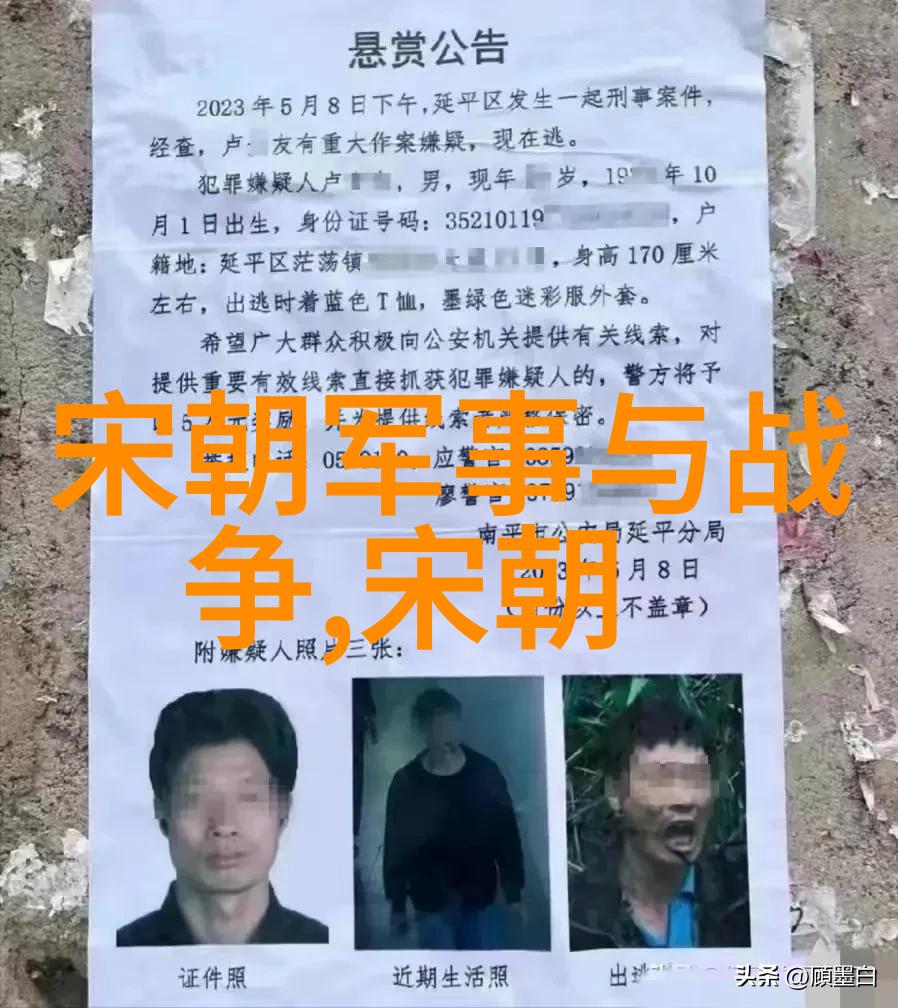 悬赏公告
2023年5月8日下午,延平区发生一起刑事案件,
经查,卢 友有重大作案嫌疑,现在逃。
犯罪嫌疑人卢 ,男,现年 岁,19 年10
月1日出生,身份证号码:35210119 ,户
籍地:延平区茫荡镇 ,身高170厘米
左右,出逃时着蓝色T恤,墨绿色迷彩服外套。
希望广大群众积极向公安机关提供有关线索,对
提供重要有效线索直接抓获犯罪嫌疑人的,警方将予
宋朝军事与战
争,宋朝
南平市公安局延平分局
2023年5月8日
不盖章)
附嫌疑人照片三张:
证件照
近期生活照
出逃
头条 @顾墨白